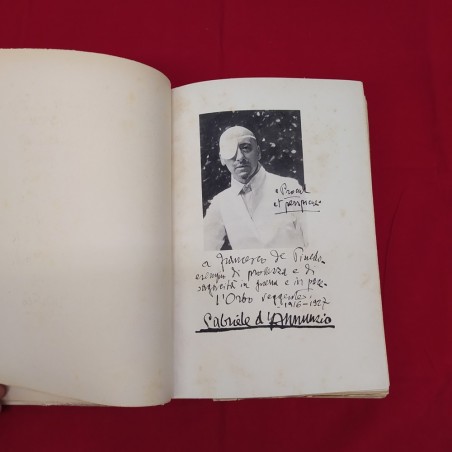 "Procul
et perspicue"
a Francesco de Pinedo
esempii di prodezza e di
sagacità in guerra e in pace
l'Orbo veggente
1916-1927
Gabriele d'Annunzio